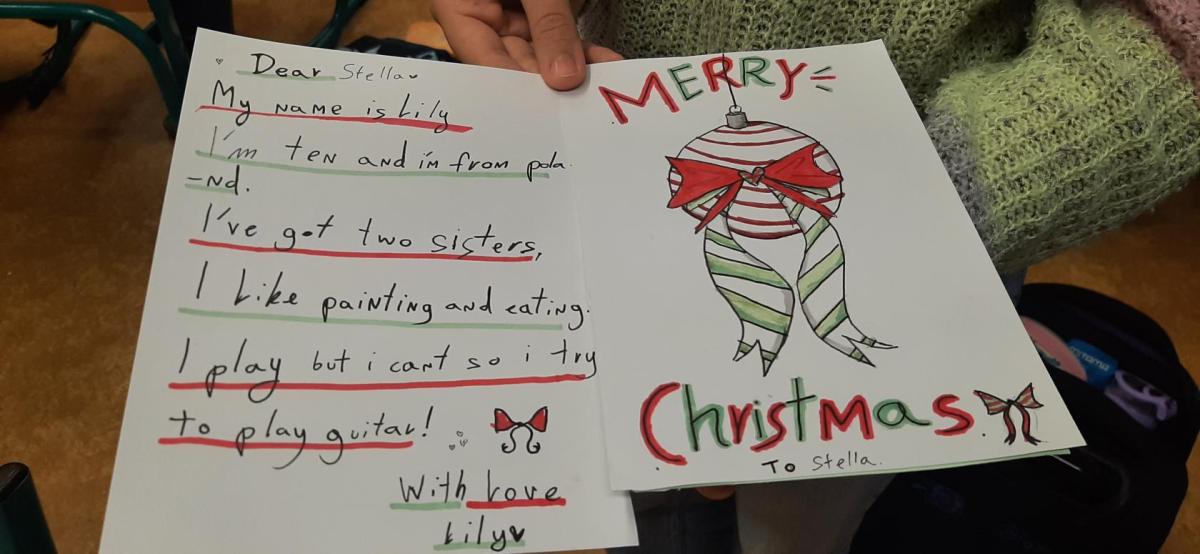 Dear Stella
My name is Lily
I'm ten and i'm from pola
-nd.
I've got two sisters,
I like painting and eating.
I play but i cant so i try
to play guitar!
With Love
Lily
MERRY
Christmas
To Stella.